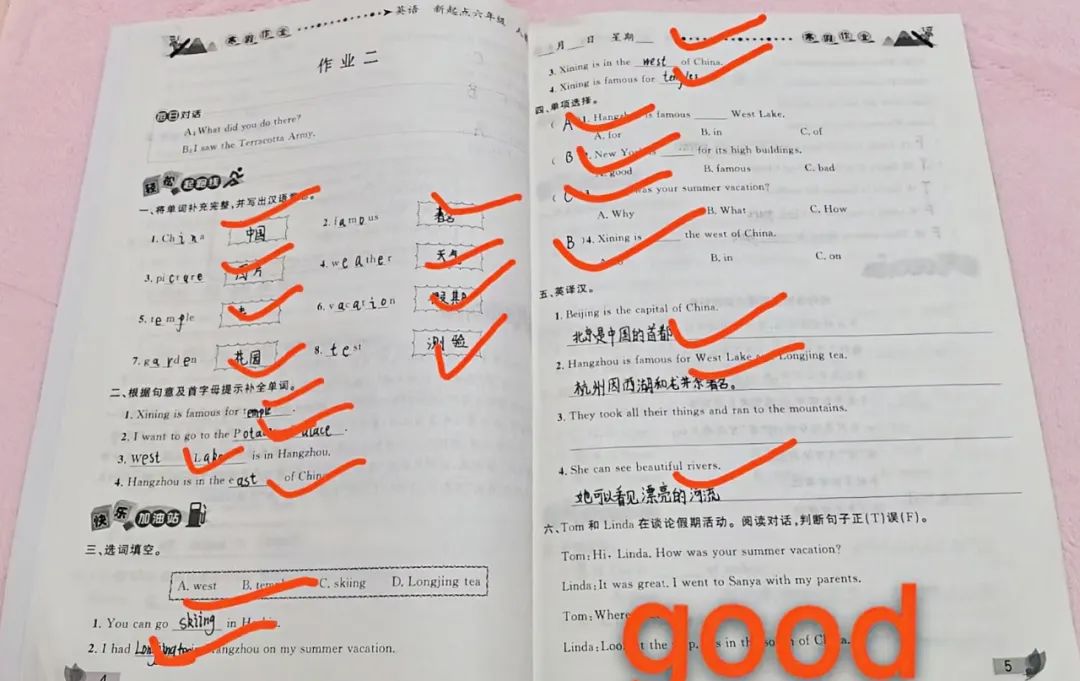 寒假作业
英语 新起点六年级
作业二
每日对话
A: What did you do there?
B: I saw the Terracotta Army.
轻松起跑线
一、将单词补充完整,并写出汉语
1. China 中国
2. famous 著名
3. picrure 片
4. weather 天气
5. temple
6. vacation 假期
7. garden 花园
8. test 测验
二、根据句意及首字母提示补全单词。
1. Xining is famous for temple.
2. I want to go to the Potala Palace.
3. West Lake is in Hangzhou.
4. Hangzhou is in the east of China.
快乐加油站
三、选词填空。
A. west B. C. skiing D. Longjing tea
1. You can go skiing in
2. I had Hangzhou on my summer vacation.
4
月 日 星期
寒假作业
3. Xining is in the west of China.
4. Xining is famous for temples
四、单项选择。
( A )1. Hangzhou is famous ____ West Lake.
A. for B. in C. of
( B )2. New York is ____ for its high buildings.
A. good B. famous C. bad
( C was your summer vacation?
A. Why B. What C. How
B )4. Xining is ____ the west of China.
B. in C. on
五、英译汉。
1. Beijing is the capital of China.
北京是中国的首都
2. Hangzhou is famous for West Lake and Longjing tea.
杭州因西湖和龙井尔著名。
3. They took all their things and ran to the mountains.
4. She can see beautiful rivers.
她可以看见漂亮的河流
六、Tom 和 Linda 在谈论假期活动。阅读对话,判断句子正(T)误(F)。
Tom: Hi, Linda. How was your summer vacation?
Linda: It was great. I went to Sanya with my parents.
Tom: Where
Linda: Look at the in the south of China.
good
5